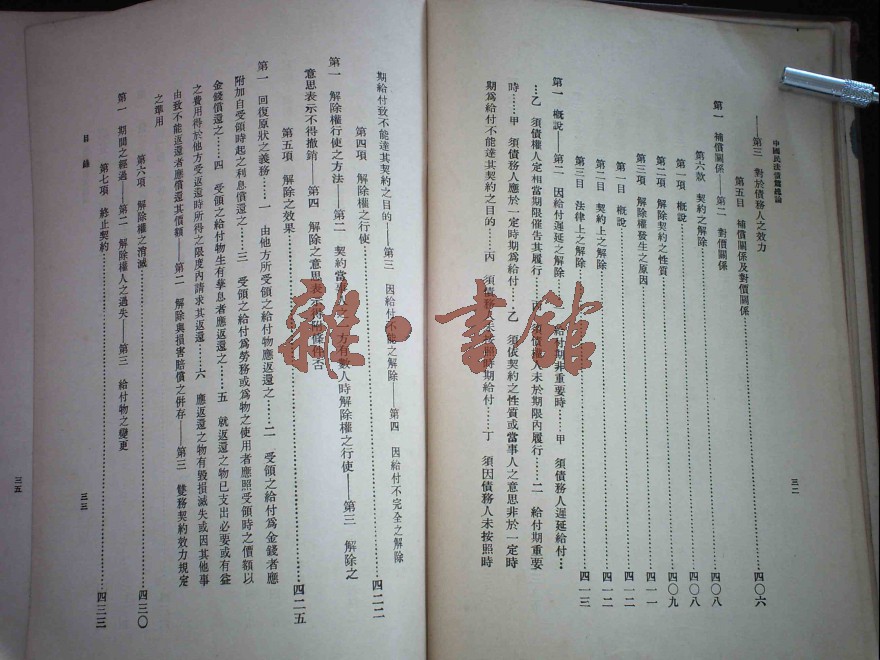 中國民法債編總論
三二
——第三　對於債務人之效力
第五目　補償關係及對價關係…………四〇六
第一　補償關係——第二　對價關係
第六款　契約之解除…………四〇八
第一項　概說…………四〇八
第二項　解除契約之性質…………四〇九
第三項　解除權發生之原因…………四一一
第一目　概說…………四一二
第二目　契約上之解除…………四一二
第三目　法律上之解除…………四一三
第一　概說——第二　因給付遲延之解除……一　給付期非重要時……甲　須債務人遲延給付…
…乙　須債權人定相當期限催告其履行……丙　須債務人未於期限內履行……二　給付期重要
時……甲　須債務人應於一定時期為給付……乙　須依契約之性質或當事人之意思非於一定時
期為給付不能達其契約之目的……丙　須債務人未按照時期給付……丁　須因債務人未按照時
期給付致不能達其契約之目的——第三　因給付不能之解除——第四　因給付不完全之解除
第四項　解除權之行使…………四二二
第一　解除權行使之方法——第二　契約當事人之一方有數人時解除權之行使——第三　解除之
意思表示不得撤銷——第四　解除之意思表示得附條件否
第五項　解除之效果…………四二五
第一　回復原狀之義務……一　由他方所受領之給付物應返還之……二　受領之給付為金錢者應
附加自受領時起之利息償還之……三　受領之給付為勞務或為物之使用者應照受領時之價額以
金錢償還之……四　受領之給付物生有孳息者應返還之……五　就返還之物已支出必要或有益
之費用得於他方受返還時所得之限度內請求其返還……六　應返還之物有毀損滅失或因其他事
由致不能返還者應償還其價額——第二　解除與損害賠償之併存——第三　雙務契約效力規定
之準用
第六項　解除權之消滅…………四三〇
第一　期間之經過——第二　解除權人之過失——第三　給付物之變更
第七項　終止契約…………四三三
目錄
三三
三五
雜·書館